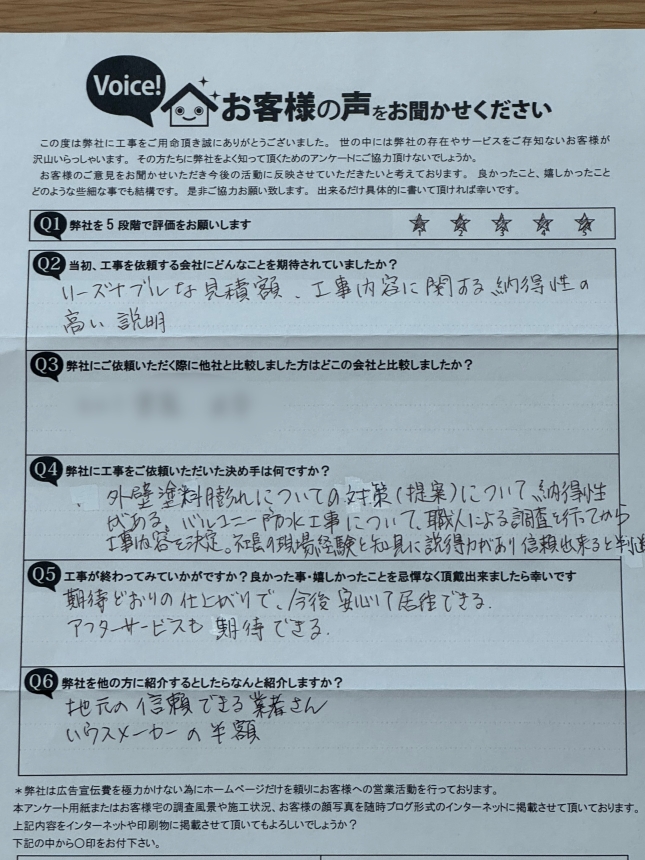 Voice!
お客様の声をお聞かせください
この度は弊社に工事をご用命頂き誠にありがとうございました。 世の中には弊社の存在やサービスをご存知ないお客様が
沢山いらっしゃいます。 その方たちに弊社をよく知って頂くためのアンケートにご協力頂けないでしょうか。
お客様のご意見をお聞かせいただき今後の活動に反映させていただきたいと考えております。 良かったこと、嬉しかったこと
どのような些細な事でも結構です。 是非ご協力お願い致します。 出来るだけ具体的に書いて頂ければ幸いです。
Q1 弊社を5段階で評価をお願いします 1 2 3 4 5
Q2 当初、工事を依頼する会社にどんなことを期待されていましたか?
リーズナブルな見積額、工事内容に関する納得性の
高い説明
Q3 弊社にご依頼いただく際に他社と比較しました方はどこの会社と比較しましたか?
Q4 弊社に工事をご依頼いただいた決め手は何ですか?
、外壁塗料膨れについての対策(提案)について、納得性
がある。バルコニー防水工事について、職人による調査を行ってから
工事内容を決定。社長の現場経験と知見に説得力があり信頼出来ると判断
Q5 工事が終わってみていかがですか? 良かった事・嬉しかったことを忌憚なく頂戴出来ましたら幸いです
期待どおりの仕上がりで、今後安心して居住できる.
アフターサービスも期待できる.
Q6 弊社を他の方に紹介するとしたらなんと紹介しますか?
地元の信頼できる業者さん
ハウスメーカーの半額
*弊社は広告宣伝費を極力かけない為にホームページだけを頼りにお客様への営業活動を行っております。
本アンケート用紙またはお客様宅の調査風景や施工状況、お客様の顔写真を随時ブログ形式のインターネットに掲載させて頂いております。
上記内容をインターネットや印刷物に掲載させて頂いてもよろしいでしょうか?
下記の中から〇印をお付下さい。